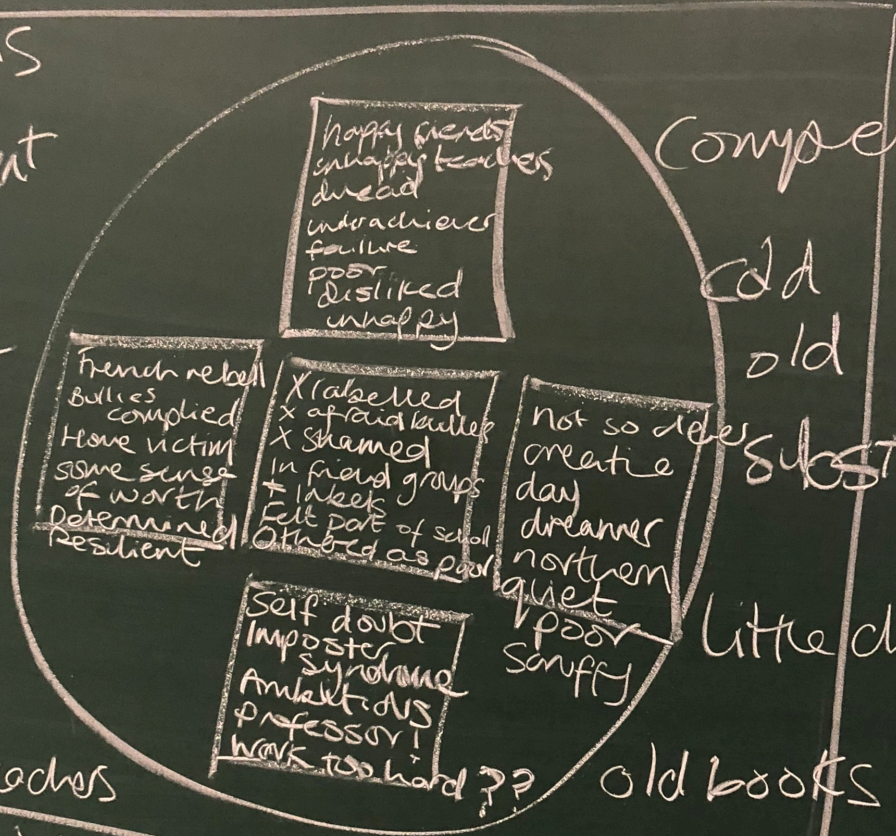 happy friends
unhappy teachers
dread
underachiever
failure
poor
disliked
unhappy
French rebel
Bullies
complied
Home victim
some sense
of worth
Determined
Resilient
X labelled
X afraid bullies
X Shamed
In friend groups
+ linked
Felt part of school
Othered as poor
not so clever
creative
day
dreamer
northern
quiet
poor
scruffy
Self doubt
Imposter
Syndrome
Ambitious
professor!
work too hard??
cold
old
old books